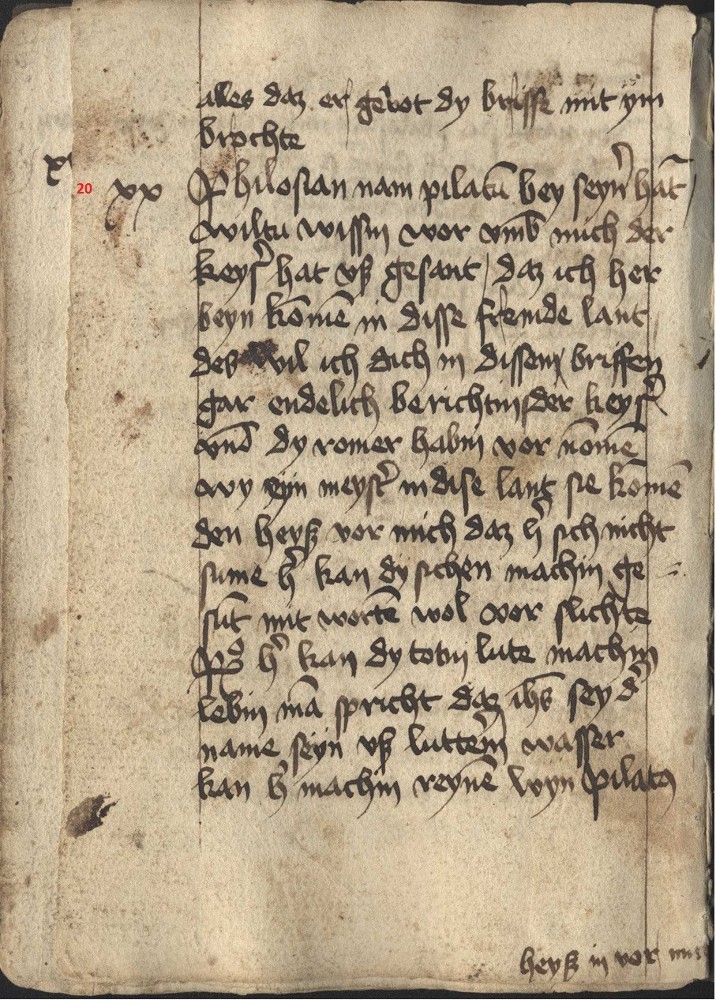 alles daz er gebot dy briffe mit ym
brochte
x
20 xx Philosian nam pilatū bey seyn̄ hāt
wiltu wissin wor vmb mich der
keys͛ hat vß gesant / daz ich her
beyn komē in disse fremde lant
des wil ich dich in dissem briffen
gar endelich berichtin der keys͛
vnd dy romer habin vor nomē
wy eyn meyst͛ in dise lant sie komē
den heyß vor mich daz h͛ sich nicht
sume h͛ kan dy sichen machin ge
sūt mit wortē wol vor slichte
h͛ kan dy totin lute machin
lebin mā spricht daz ihs sey d͛
name seyn vß luttem wasser
kan h͛ machin reynē wyn pilatꝰ
heyß in vor